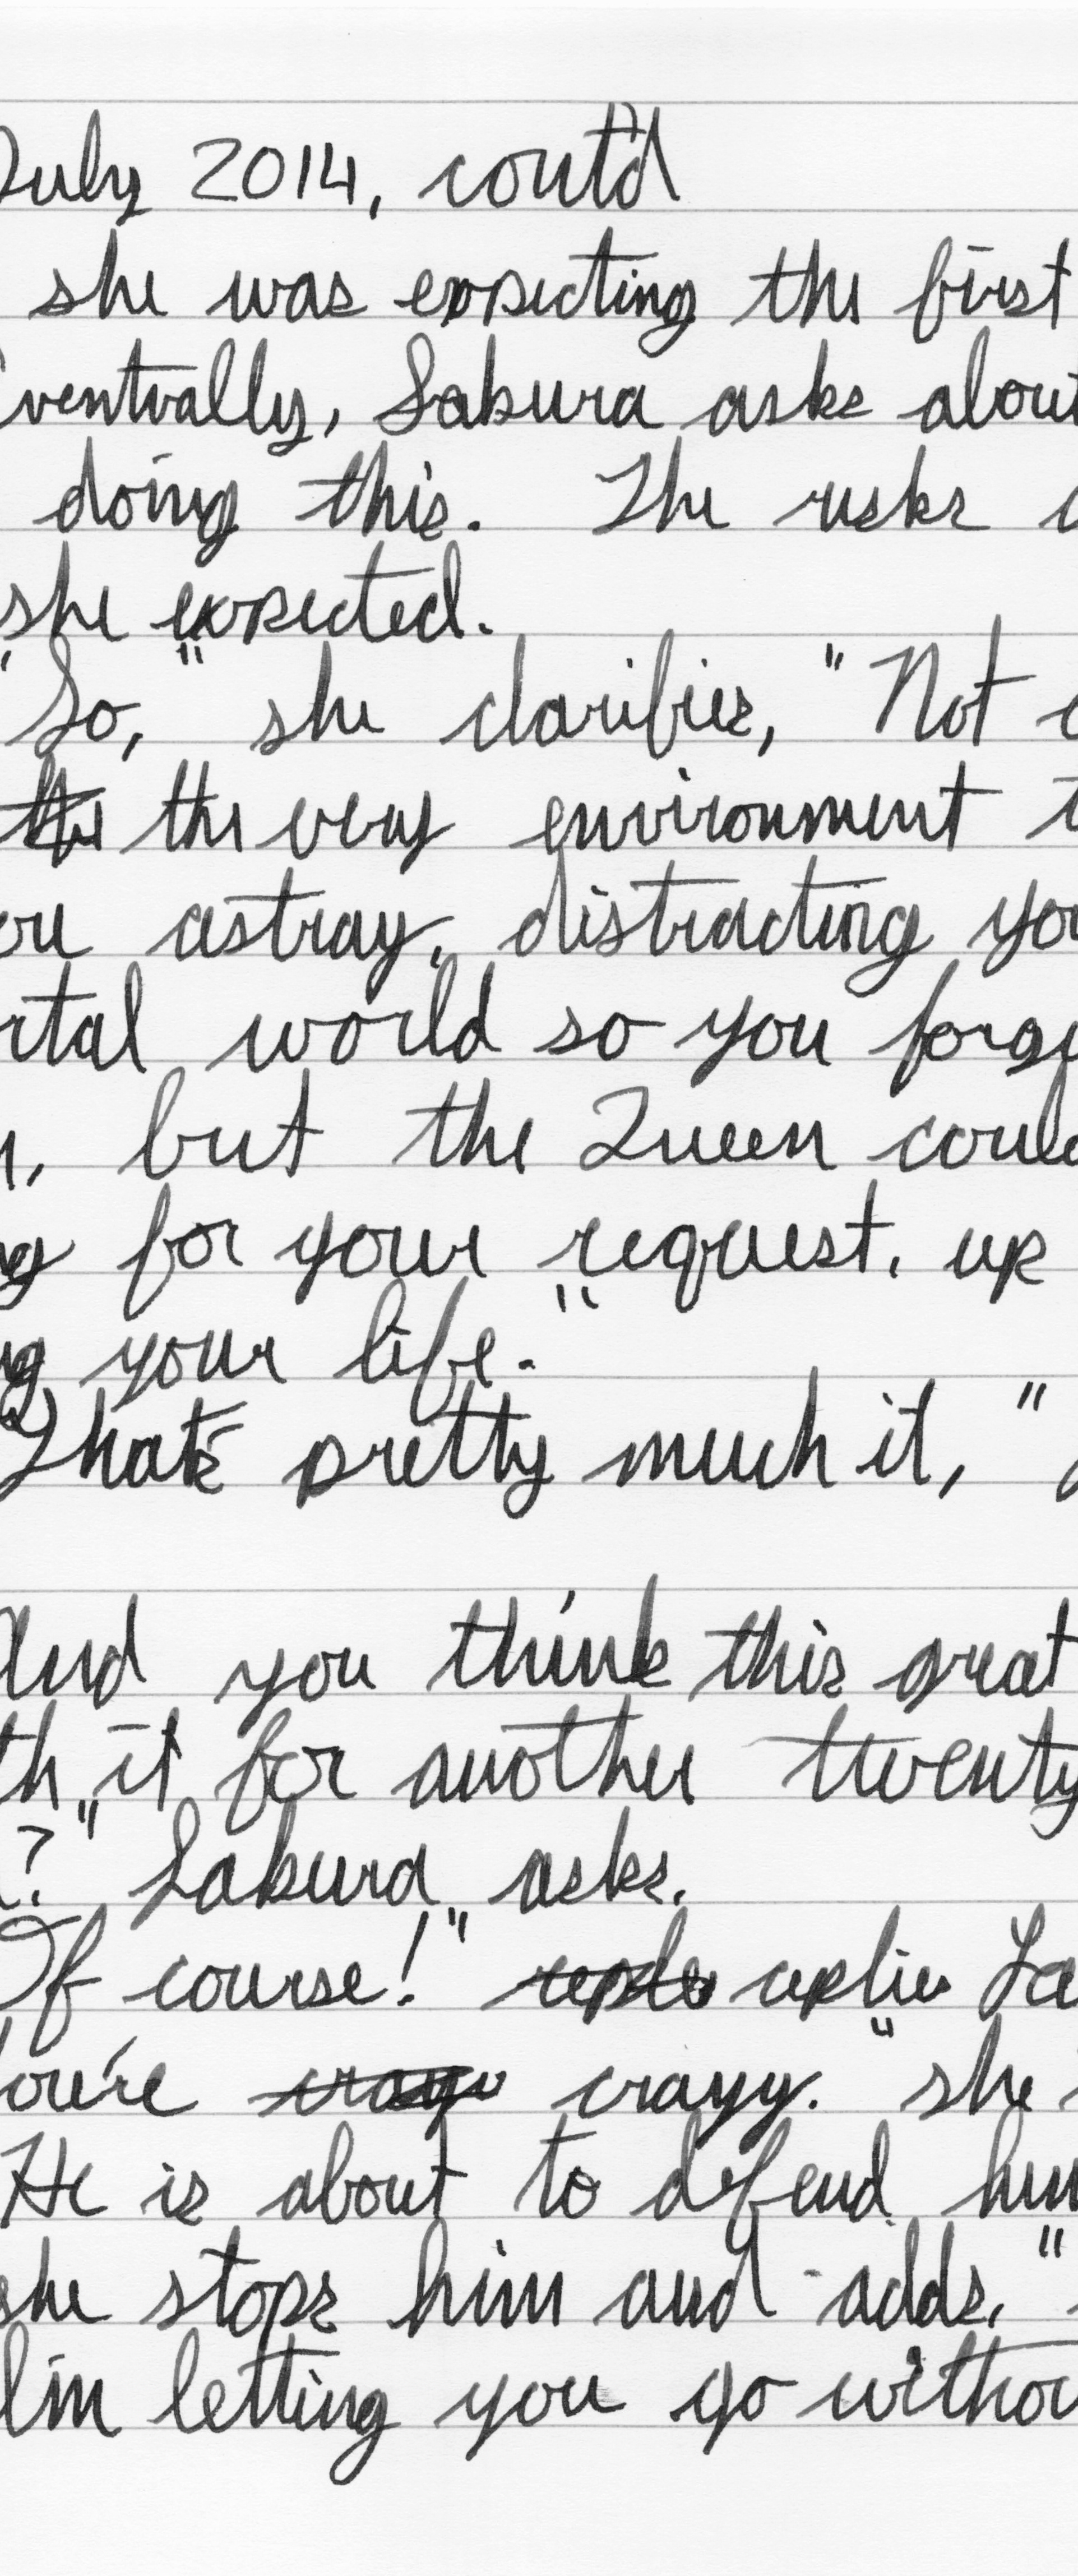 July 2014, cont'd
she was expecting the first
Eventually, Sakura asks about
doing this. The risks
she expected.
"So," she clarifies, "Not
~~the~~ the very environment
astray, distracting you
world so you
but the Queen could
for your request, up
your life."
"That's pretty much it,"
And you think this great
it for another twenty
?" Sakura asks.
Of course!" replies
you're crazy." she
He is about to defend
she stops him and adds, "
I'm letting you go